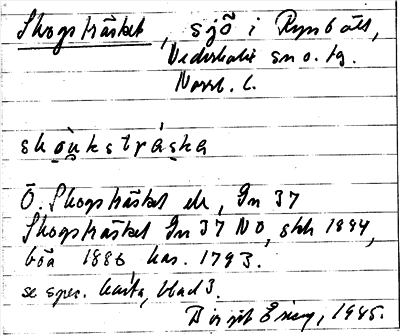 Skogsträsket, sjö i Rynbäck,
Nederkalix sn o. tg.
Norrb. l.
skòu̯ksträska
Ö. Skogsträsket ek, Gn 37
Skogsträsket Gn 37 NO, skh 1894,
böa 1886 kar. 1793.
se spec. karta, blad 3.
Birgit Ering, 1985.